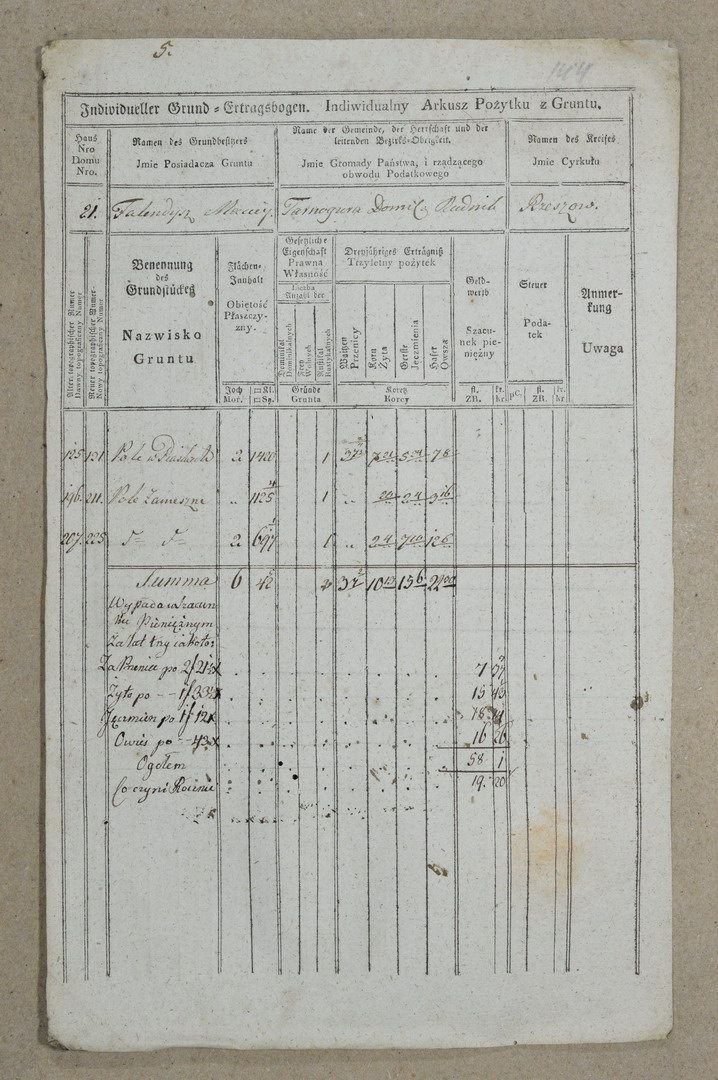 5.
144
Individueller Grund-Ertragsbogen. Indiwidualny Arkusz Pożytku z Gruntu.
Haus Nro Domu Nro.
Namen des Grundbesitzers
Jmie Posiadacza Gruntu
Name der Gemeinde, der Herrschaft und der
leitenden Bezirks-Obrigkeit.
Jmie Gromady Państwa, i rządzącego
obwodu Podatkowego
Namen des Kreises
Jmie Cyrkułu
21. Talendysz Maciey. Tarnogura Domi Rudnik Rzeszow.
Alter topographischer Numer
Dawny topograficzny Numer
Neuer topographischer Numer
Nowy topograficzny Numer
Benennung
des
Grundstückes
Nazwisko
Gruntu
Flächen-
Innhalt
Obiętość
Płaszczy-
zny.
Joch □Kl.
Mor. □Sg.
Gesetzliche
Eigenschaft
Prawna
Własność
Liczba
Anzahl der
Dominikal
Dominikalnych
Frey
Wolnych
Rustikal
Rustykalnych
Gründe
Grunta
Dreyjähriges Erträgniß
Trzyletny pożytek
Waitzen
Przenicy
Korn
Żyta
Gerste
Jęczmienia
Hafer
Owsza
Koretz
Korcy
Geld-
werth
Szacu-
nek pie-
niężny
fl. kr.
ZR. kr.
Steuer
Poda-
tek
pC. fl. kr.
ZR. kr.
Anmer-
kung
Uwaga
125 131 Pole w 2 1400 1
196. 211. Pole Zameszne " 1125 1 " 20 24 3 16
207. 225 2 697 1 " 24 7 10 12 6
Summa 6 42
Wypada w Szacun
ku Pieniężnym
Za lat trzy
Za Prenice po 7 37
Żyto po 15 43
Jęczmien po 1f 12x 18
Owies po - 43x 16 26
Ogołem 58 1
Co czyni Rocznie 19. 20